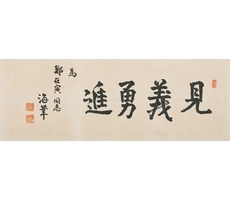 見義勇進
為
鄭在寅同志
海葦